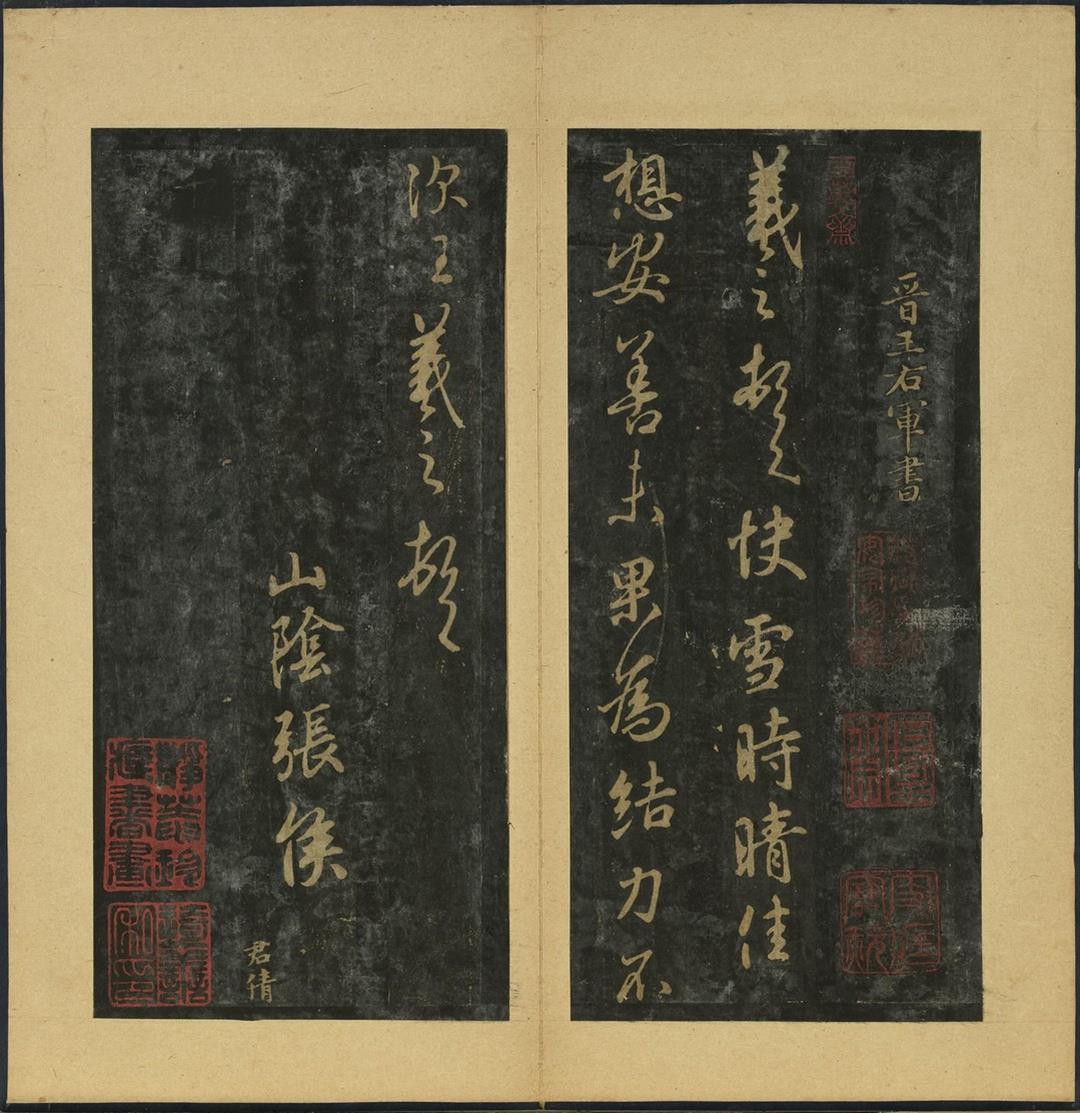 晉王右軍書
羲之頓首快雪時晴佳
想安善未果為結力不
次王羲之頓首
山陰張侯
君倩